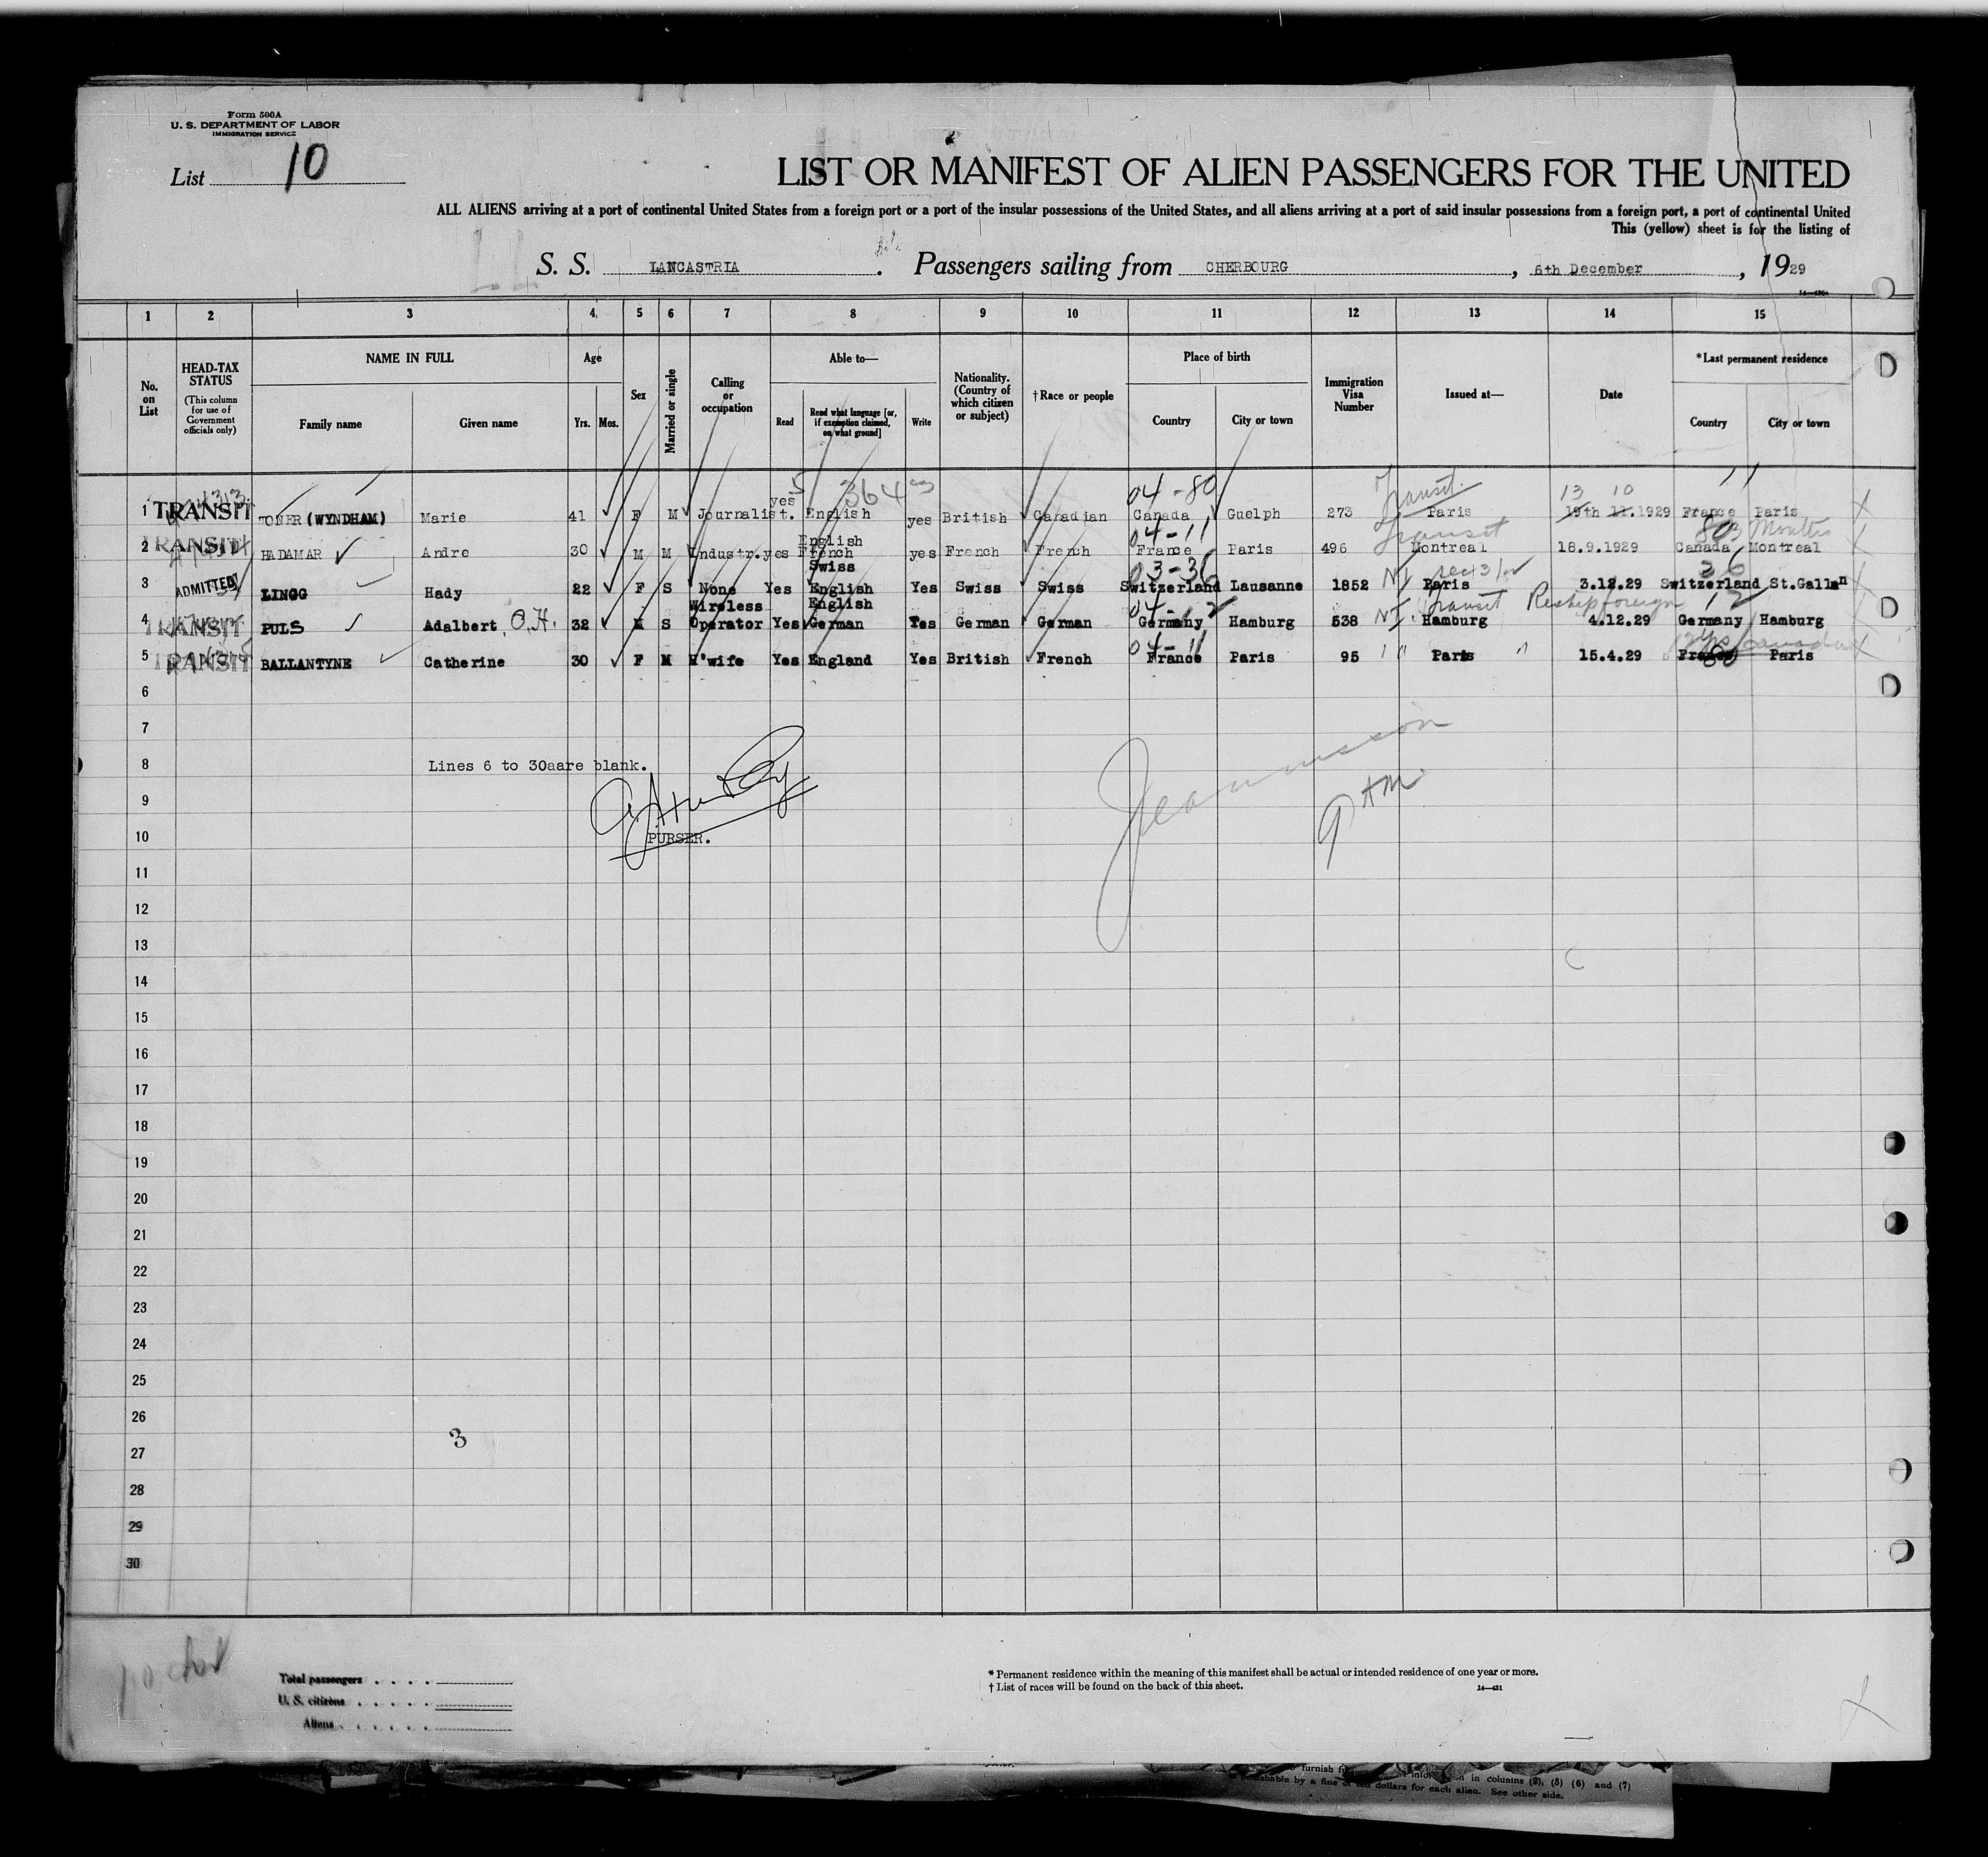 Form 500A
U. S. DEPARTMENT OF LABOR
IMMIGRATION SERVICE
List 10
LIST OR MANIFEST OF ALIEN PASSENGERS FOR THE UNITED
ALL ALIENS arriving at a port of continental United States from a foreign port or a port of the insular possessions of the United States, and all aliens arriving at a port of said insular possessions from a foreign port, a port of continental United
This (yellow) sheet is for the listing of
S. S. LANCASTRIA. Passengers sailing from CHERBOURG, 6th December, 1929
1 2 3 4 5 6 7 8 9 10 11 12 13 14 15
No. on List
HEAD-TAX STATUS
(This column for use of Government officials only)
NAME IN FULL
Family name Given name
Age
Yrs. Mos.
Sex
Married or single
Calling or occupation
Able to—
Read
Read what language [or, if exemption claimed, on what ground]
Write
Nationality. (Country of which citizen or subject)
†Race or people
Place of birth
Country City or town
Immigration Visa Number
Issued at—
Date
*Last permanent residence
Country City or town
5 364 04-80 Transit. 13 10 11
1 TRANSIT TONER (WYNDHAM) Marie 41 F M Journalist. yes English yes British Canadian Canada Guelph 273 Paris 19th 11.1929 France Paris
04-11 Transit 80 3 Months
2 TRANSIT HADAMAR Andre 30 M M Industr. yes English French yes French French France Paris 496 Montreal 18.9.1929 Canada Montreal
03-36 26
3 ADMITTED LINGG Hady 22 F S None Yes Swiss English Yes Swiss Swiss Switzerland Lausanne 1852 Paris 3.12.29 Switzerland St.Gallen
04-12 Transit Reship foreign 12
4 TRANSIT PULS Adalbert, O.H. 32 M S Wireless Operator Yes English German Yes German German Germany Hamburg 538 Hamburg 4.12.29 Germany Hamburg
04-11 80
5 TRANSIT BALLANTYNE Catherine 30 F M H'wife Yes England Yes British French France Paris 95 Paris 15.4.29 France Paris
6
7
8 Lines 6 to 30aare blank.
9
10 PURSER.
9 AM
11
12
13
14
15
16
17
18
19
20
21
22
23
24
25
26
3
27
28
29
30
Total passengers
U. S. citizens
Aliens
* Permanent residence within the meaning of this manifest shall be actual or intended residence of one year or more.
† List of races will be found on the back of this sheet.
14—431
in columns (2), (5) (6) and (7)
dollars for each alien. See other side.